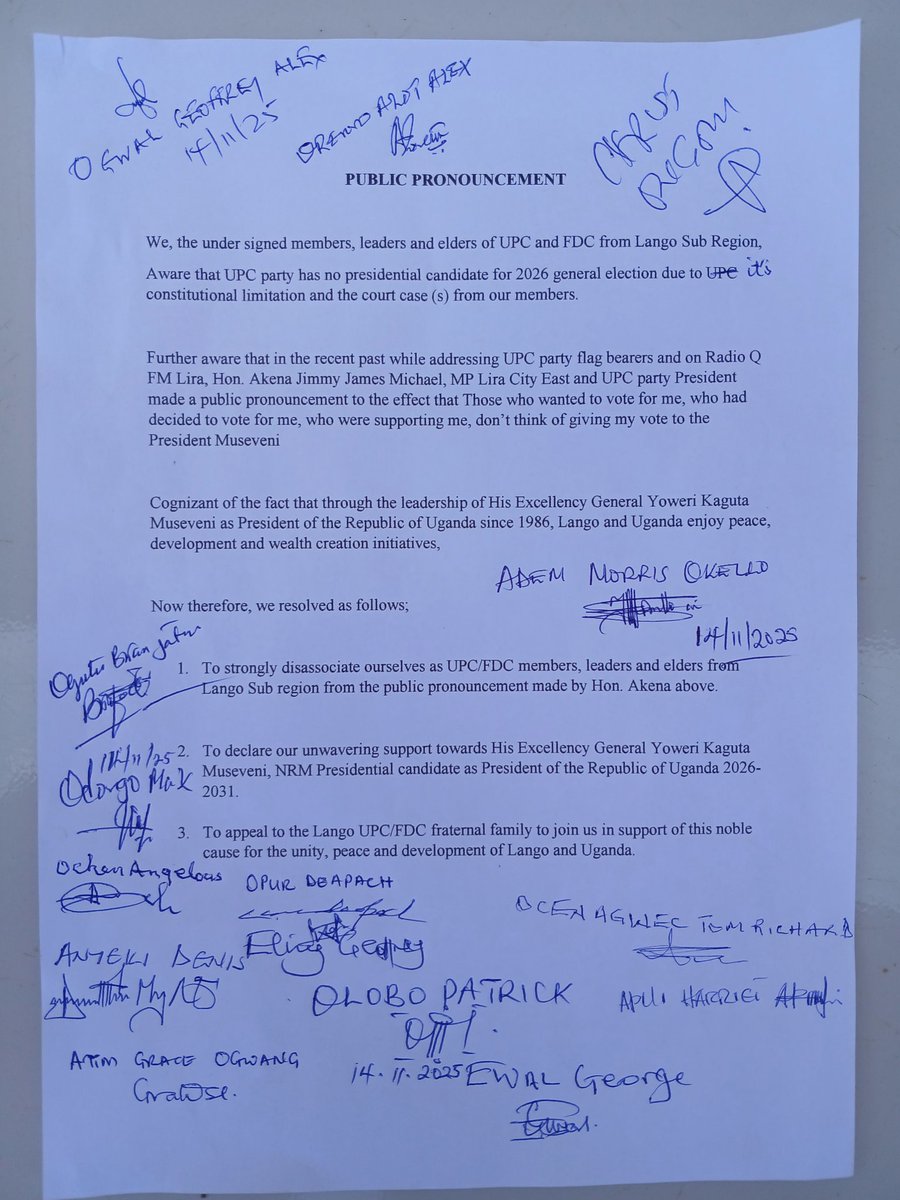 OGWAL GEOFFREY ALEX
14/11/25
ALEX
PUBLIC PRONOUNCEMENT
We, the under signed members, leaders and elders of UPC and FDC from Lango Sub Region,
Aware that UPC party has no presidential candidate for 2026 general election due to UPC it's
constitutional limitation and the court case (s) from our members.
Further aware that in the recent past while addressing UPC party flag bearers and on Radio Q
FM Lira, Hon. Akena Jimmy James Michael, MP Lira City East and UPC party President
made a public pronouncement to the effect that Those who wanted to vote for me, who had
decided to vote for me, who were supporting me, don't think of giving my vote to the
President Museveni
Cognizant of the fact that through the leadership of His Excellency General Yoweri Kaguta
Museveni as President of the Republic of Uganda since 1986, Lango and Uganda enjoy peace,
development and wealth creation initiatives,
ADEM MORRIS OKELLO
14/11/2025
Now therefore, we resolved as follows;
1. To strongly disassociate ourselves as UPC/FDC members, leaders and elders from
Lango Sub region from the public pronouncement made by Hon. Akena above.
Brian
14/11/25
2. To declare our unwavering support towards His Excellency General Yoweri Kaguta
Museveni, NRM Presidential candidate as President of the Republic of Uganda 2026-
2031.
Odongo Max
3. To appeal to the Lango UPC/FDC fraternal family to join us in support of this noble
cause for the unity, peace and development of Lango and Uganda.
Ochen Angelous
OPUR DEAPACH
OCEN AGWEC TOM RICHARD
DENIS
OLOBO PATRICK
HARRIET
ATIM GRACE OGWANG
14.11.2025
EWAL George